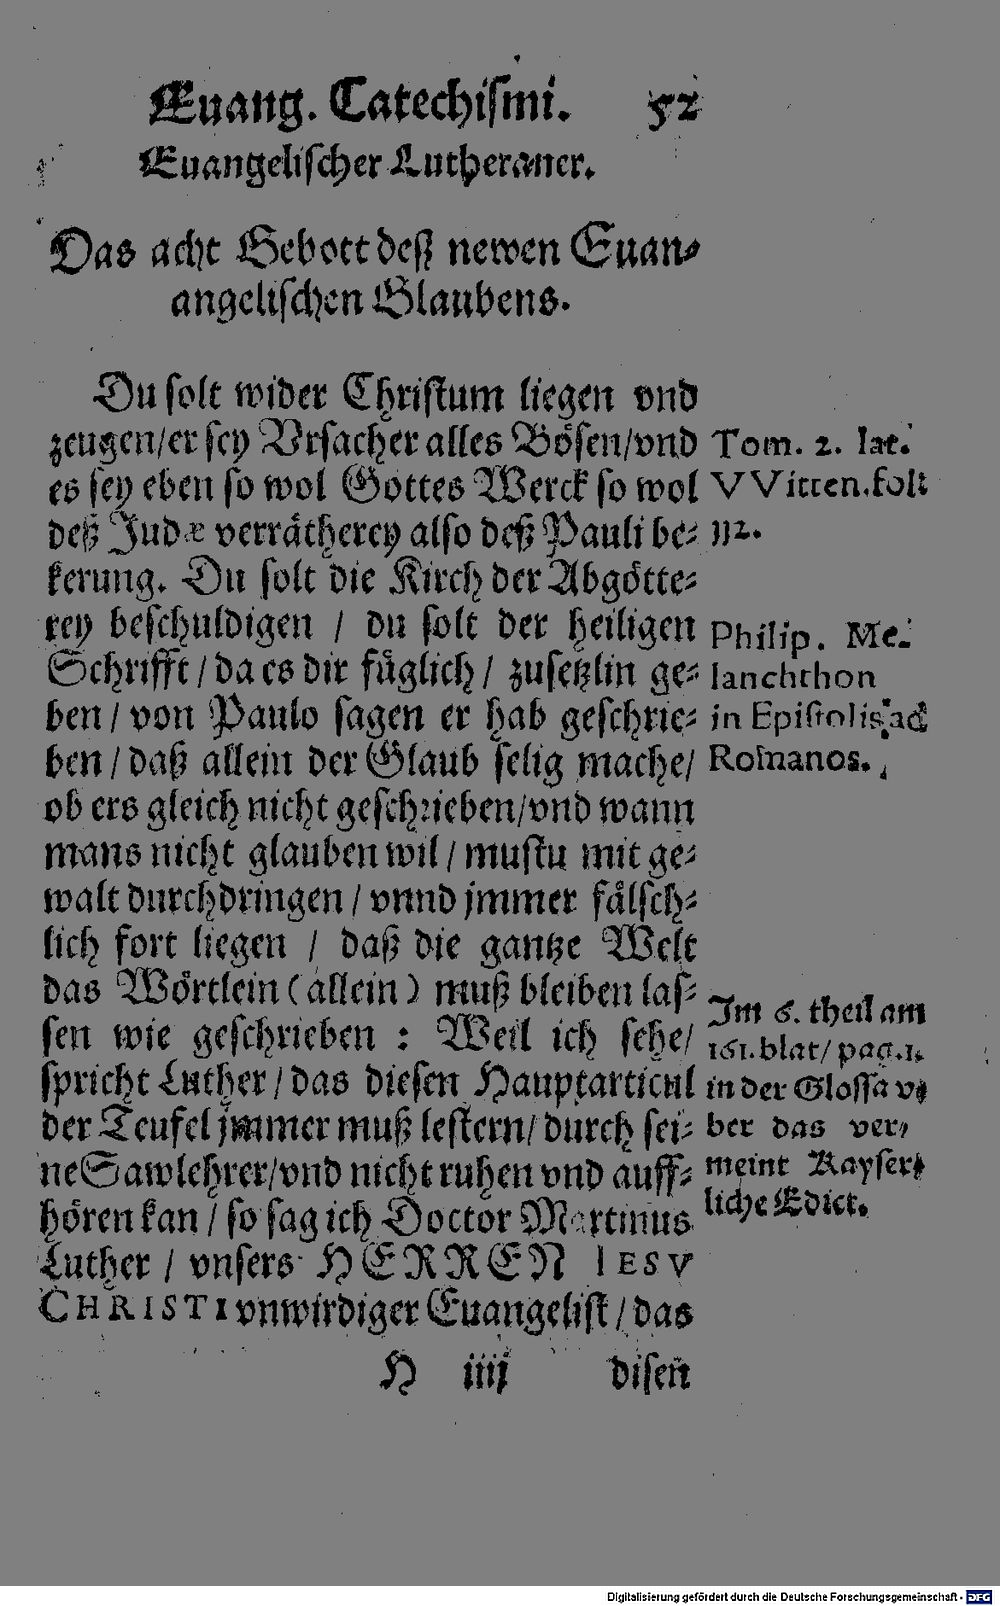 Euang. Catechismi. 52
Euangelischer Lutheraner.
Das acht Gebott deß newen Euan-
angelischen Glaubens.
Du solt wider Christum liegen vnd
zeugen/er sey Vrsacher alles Bösen/vnd
es sey eben so wol Gottes Werck so wol
deß Judæ verrätherey also deß Pauli be-
kerung. Du solt die Kirch der Abgötte-
rey beschuldigen / du solt der heiligen
Schrifft / da es dir füglich / zusetzlin ge-
ben / von Paulo sagen er hab geschrie-
ben / daß allein der Glaub selig mache/
ob ers gleich nicht geschrieben/vnd wann
mans nicht glauben wil / mustu mit ge-
walt durchdringen / vnnd jmmer fälsch-
lich fort liegen / daß die gantze Welt
das Wörtlein (allein) muß bleiben las-
sen wie geschrieben : Weil ich sehe/
spricht Luther / das diesen Hauptarticul
der Teufel jmmer muß lestern/ durch sei-
ne Sawlehrer/vnd nicht ruhen vnd auff-
hören kan / so sag ich Doctor Martinus
Luther / vnsers HERREN IESV
CHRISTI vnwirdiger Euangelist / das
H iiij disen
Tom. 2. lat.
VVitten.foli
112.
Philip. Me-
lanchthon
in Epistolis ad
Romanos.
Im 6. theil am
161.blat/ pag.1.
in der Glossa v-
ber das ver-
meint Kayser-
liche Edict.
Digitalisierung gefördert durch die Deutsche Forschungsgemeinschaft - DFG